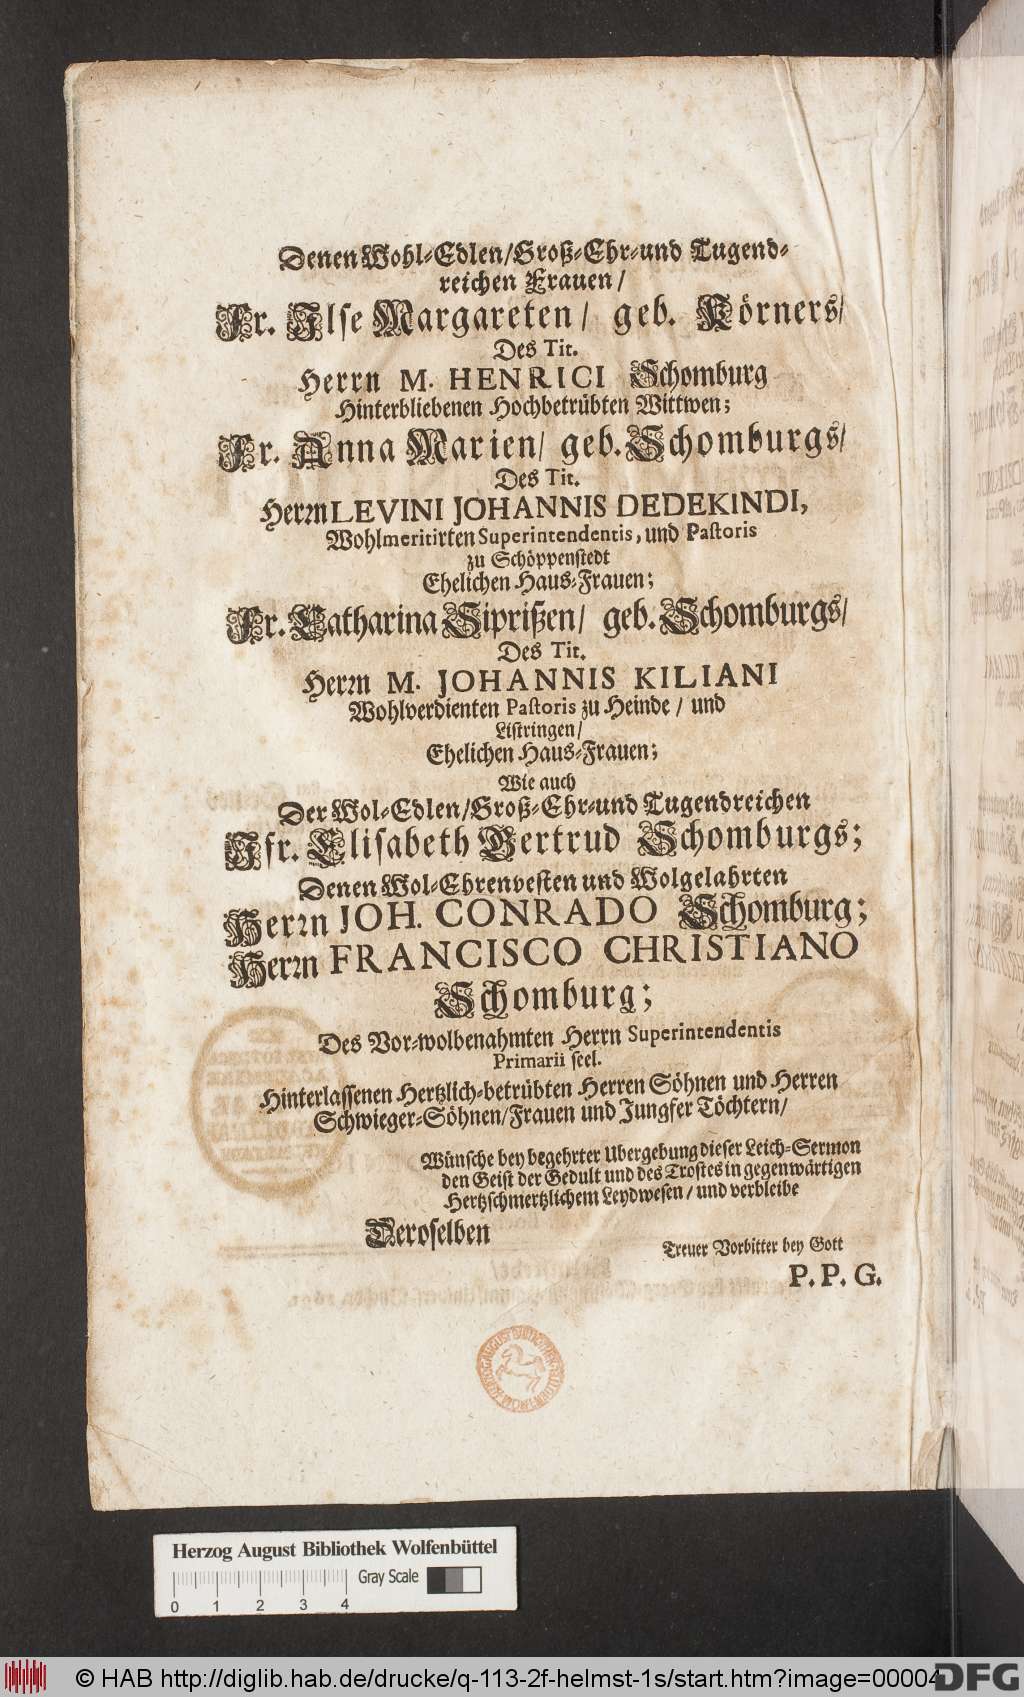 Denen Wohl-Edlen/Groß-Ehr-und Tugend-
reichen Frauen/
Fr. Ilse Margareten/ geb. Körners/
Des Tit.
Herrn M. HENRICI Schomburg
Hinterbliebenen Hochbetrübten Wittwen;
Fr. Anna Marien/ geb. Schomburgs/
Des Tit.
Herrn LEVINI JOHANNIS DEDEKINDI,
Wohlmeritirten Superintendentis, und Pastoris
zu Schöppenstedt
Ehelichen Haus-Frauen;
Fr. Catharina Siprißen/ geb. Schomburgs/
Des Tit.
Herrn M. JOHANNIS KILIANI
Wohlverdienten Pastoris zu Heinde / und
Listringen/
Ehelichen Haus-Frauen;
Wie auch
Der Wol-Edlen/Groß-Ehr-und Tugendreichen
Jfr. Elisabeth Gertrud Schomburgs;
Denen Wol-Ehrenvesten und Wolgelahrten
Herrn JOH. CONRADO Schomburg;
Herrn FRANCISCO CHRISTIANO
Schomburg;
Des Vor-wolbenahmten Herrn Superintendentis
Primarii seel.
Hinterlassenen Hertzlich-betrübten Herren Söhnen und Herren
Schwieger-Söhnen/Frauen und Jungfer Töchtern/
Wünsche bey begehrter Ubergebung dieser Leich-Sermon
den Geist der Gedult und des Trostes in gegenwärtigen
Hertzschmertzlichem Leydwesen / und verbleibe
Deroselben
Treuer Vorbitter bey Gott
P. P. G.
Herzog August Bibliothek Wolfenbüttel
Gray Scale
0 1 2 3 4
© HAB http://diglib.hab.de/drucke/q-113-2f-helmst-1s/start.htm?image=00004
DFG